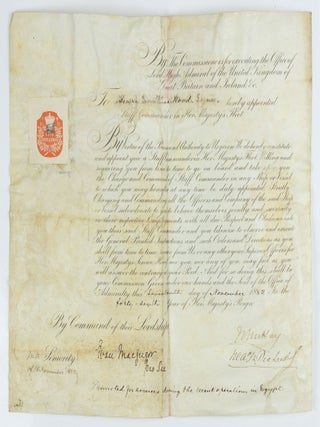 By The Commissioners for executing the Office of
Lord High Admiral of the United Kingdom of
Great Britain and Ireland &c.
To Wood Esquire hereby appointed
Staff Commander in Her Majesty's Fleet
By Virtue of the Power and Authority to Us given We do hereby constitute
and appoint you a Staff Commander in Her Majesty's Fleet Willing and
requiring you from time to time to go on board and take upon you
the Charge and Command of Staff Commander in any Ship or Vessel
to which you may hereafter at any time be duly appointed Strictly
Charging and Commanding all the Officers and Company of the said Ship
or Vessel subordinate to you to behave themselves jointly and severally
in their respective Employments with all due Respect and Obedience unto
you their said Staff Commander and you likewise to observe and execute
the General Printed Instructions and such Orders and Directions as you
shall from time to time receive from Us or any other your Superior Officers for
Her Majesty's Service Hereof nor you nor any of you may fail as you
will answer the contrary at your Peril. And for so doing this shall be
your Commission Given under our hands and the Seal of the Office of
Admiralty this day of November 1882 In the
forty-sixth Year of Her Majesty's Reign
By Command of their Lordships
With Seniority
of 18 November 1882
Evan Macgregor
Pro Sec
Promoted for services during the recent operations in Egypt.